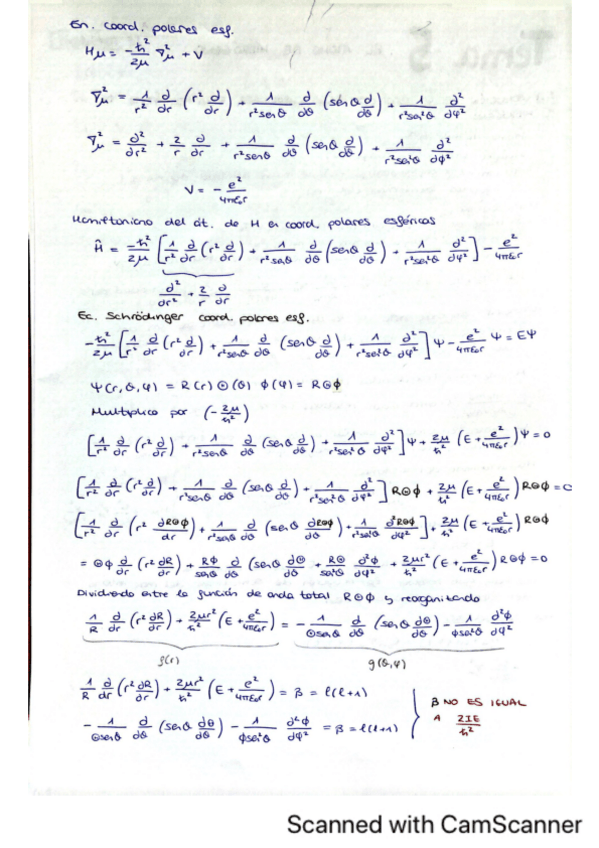 En. coord. polares esf.
Hμ = -ħ²/2μ ∇²μ + V
∇²μ = 1/r² d/dr (r² d/dr) + 1/r²senθ d/dθ (senθ d/dθ) + 1/r²sen²θ ∂²/∂φ²
∇²μ = ∂²/∂r² + 2/r ∂/∂r + 1/r²senθ d/dθ (senθ d/dθ) + 1/r²sen²θ ∂²/∂φ²
V = - e²/4πε₀r
Hamiltoniano del át. de H en coord. polares esféricas
Ĥ = -ħ²/2μ [1/r² ∂/∂r (r² ∂/∂r) + 1/r²senθ ∂/∂θ (senθ ∂/∂θ) + 1/r²sen²θ ∂²/∂φ²] - e²/4πε₀r
∂²/∂r² + 2/r ∂/∂r
Ec. Schrödinger coord. polares esf.
-ħ²/2μ [1/r² ∂/∂r (r² ∂/∂r) + 1/r²senθ ∂/∂θ (senθ ∂/∂θ) + 1/r²sen²θ ∂²/∂φ²] Ψ - e²/4πε₀r Ψ = EΨ
Ψ(r, θ, φ) = R(r) Θ(θ) Φ(φ) = RΘΦ
Multiplico por (-2μ/ħ²)
[1/r² ∂/∂r (r² ∂/∂r) + 1/r²senθ ∂/∂θ (senθ ∂/∂θ) + 1/r²sen²θ ∂²/∂φ²] Ψ + 2μ/ħ² (E + e²/4πε₀r) Ψ = 0
[1/r² ∂/∂r (r² ∂/∂r) + 1/r²senθ ∂/∂θ (senθ ∂/∂θ) + 1/r²sen²θ ∂²/∂φ²] RΘΦ + 2μ/ħ² (E + e²/4πε₀r) RΘΦ = 0
[1/r² ∂/∂r (r² ∂RΘΦ/dr) + 1/r²senθ ∂/∂θ (senθ ∂RΘΦ/∂θ) + 1/r²sen²θ ∂²RΘΦ/∂φ²] + 2μ/ħ² (E + e²/4πε₀r) RΘΦ
= ΘΦ d/dr (r² dR/dr) + RΦ/senθ d/dθ (senθ dΘ/dθ) + RΘ/sen²θ d²Φ/dφ² + 2μr²/ħ² (E + e²/4πε₀r) RΘΦ = 0
Dividiendo entre la función de onda total RΘΦ y reorganizando
1/R d/dr (r² dR/dr) + 2μr²/ħ² (E + e²/4πε₀r) = - 1/Θsenθ d/dθ (senθ dΘ/dθ) - 1/Φsen²θ d²Φ/dφ²
f(r) g(θ,φ)
1/R d/dr (r² dR/dr) + 2μr²/ħ² (E + e²/4πε₀r) = β = l(l+1)
- 1/Θsenθ d/dθ (senθ dΘ/dθ) - 1/Φsen²θ d²Φ/dφ² = β = l(l+1)
β NO ES IGUAL
A 2IE/ħ²
Scanned with CamScanner